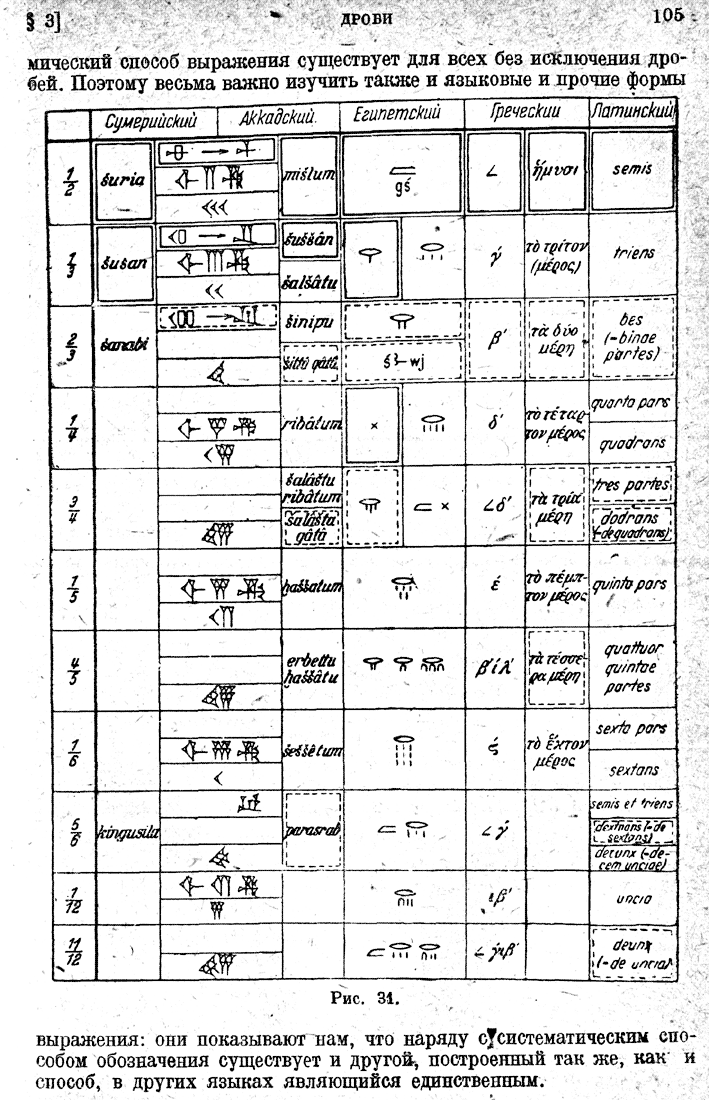 § 3]
ДРОБИ
105
мический способ выражения существует для всех без исключения дро-
бей. Поэтому весьма важно изучить также и языковые и прочие формы
Сумерийский Аккадский Египетский Греческий Латинский
1/2 šuria mišlum gś ∠ ἥμυσι semis
1/3 šušan šuššân γ́ τὸ τρίτον triens
šalšâtu (μέρος)
2/3 šanabi šinipu β′ τὰ δύο bes
μέρη (=binae
šittú qâtâ ś wj partes)
1/4 ribâtum × δ′ τὸ τέταρ-
τον μέρος quarta pars
quadrans
3/4 šalâštu
ribâtum × ∠δ′ τὰ τρία
μέρη tres partes
šalášta
qâtâ dodrans
(=dequadrans)
1/5 ḫaššatum έ τὸ πέμπ-
τον μέρος quinta pars
4/5 erbettu
ḫaššâtu τὰ τέσσε-
ρα μέρη quattuor
quintae
partes
1/6 šeššêtum τὸ ἕκτον
μέρος sexta pars
sextans
5/6 kingusila parasrab ∠ γ́ semis et triens
dextans (=de
sextans)
decunx (=de-
cem unciae)
1/12 ιβ′ uncia
11/12 ∠ γ́ιβ′ deunx
(=de uncia)
Рис. 31.
выражения: они показывают нам, что наряду с систематическим спо-
собом обозначения существует и другой, построенный так же, как и
способ, в других языках являющийся единственным.